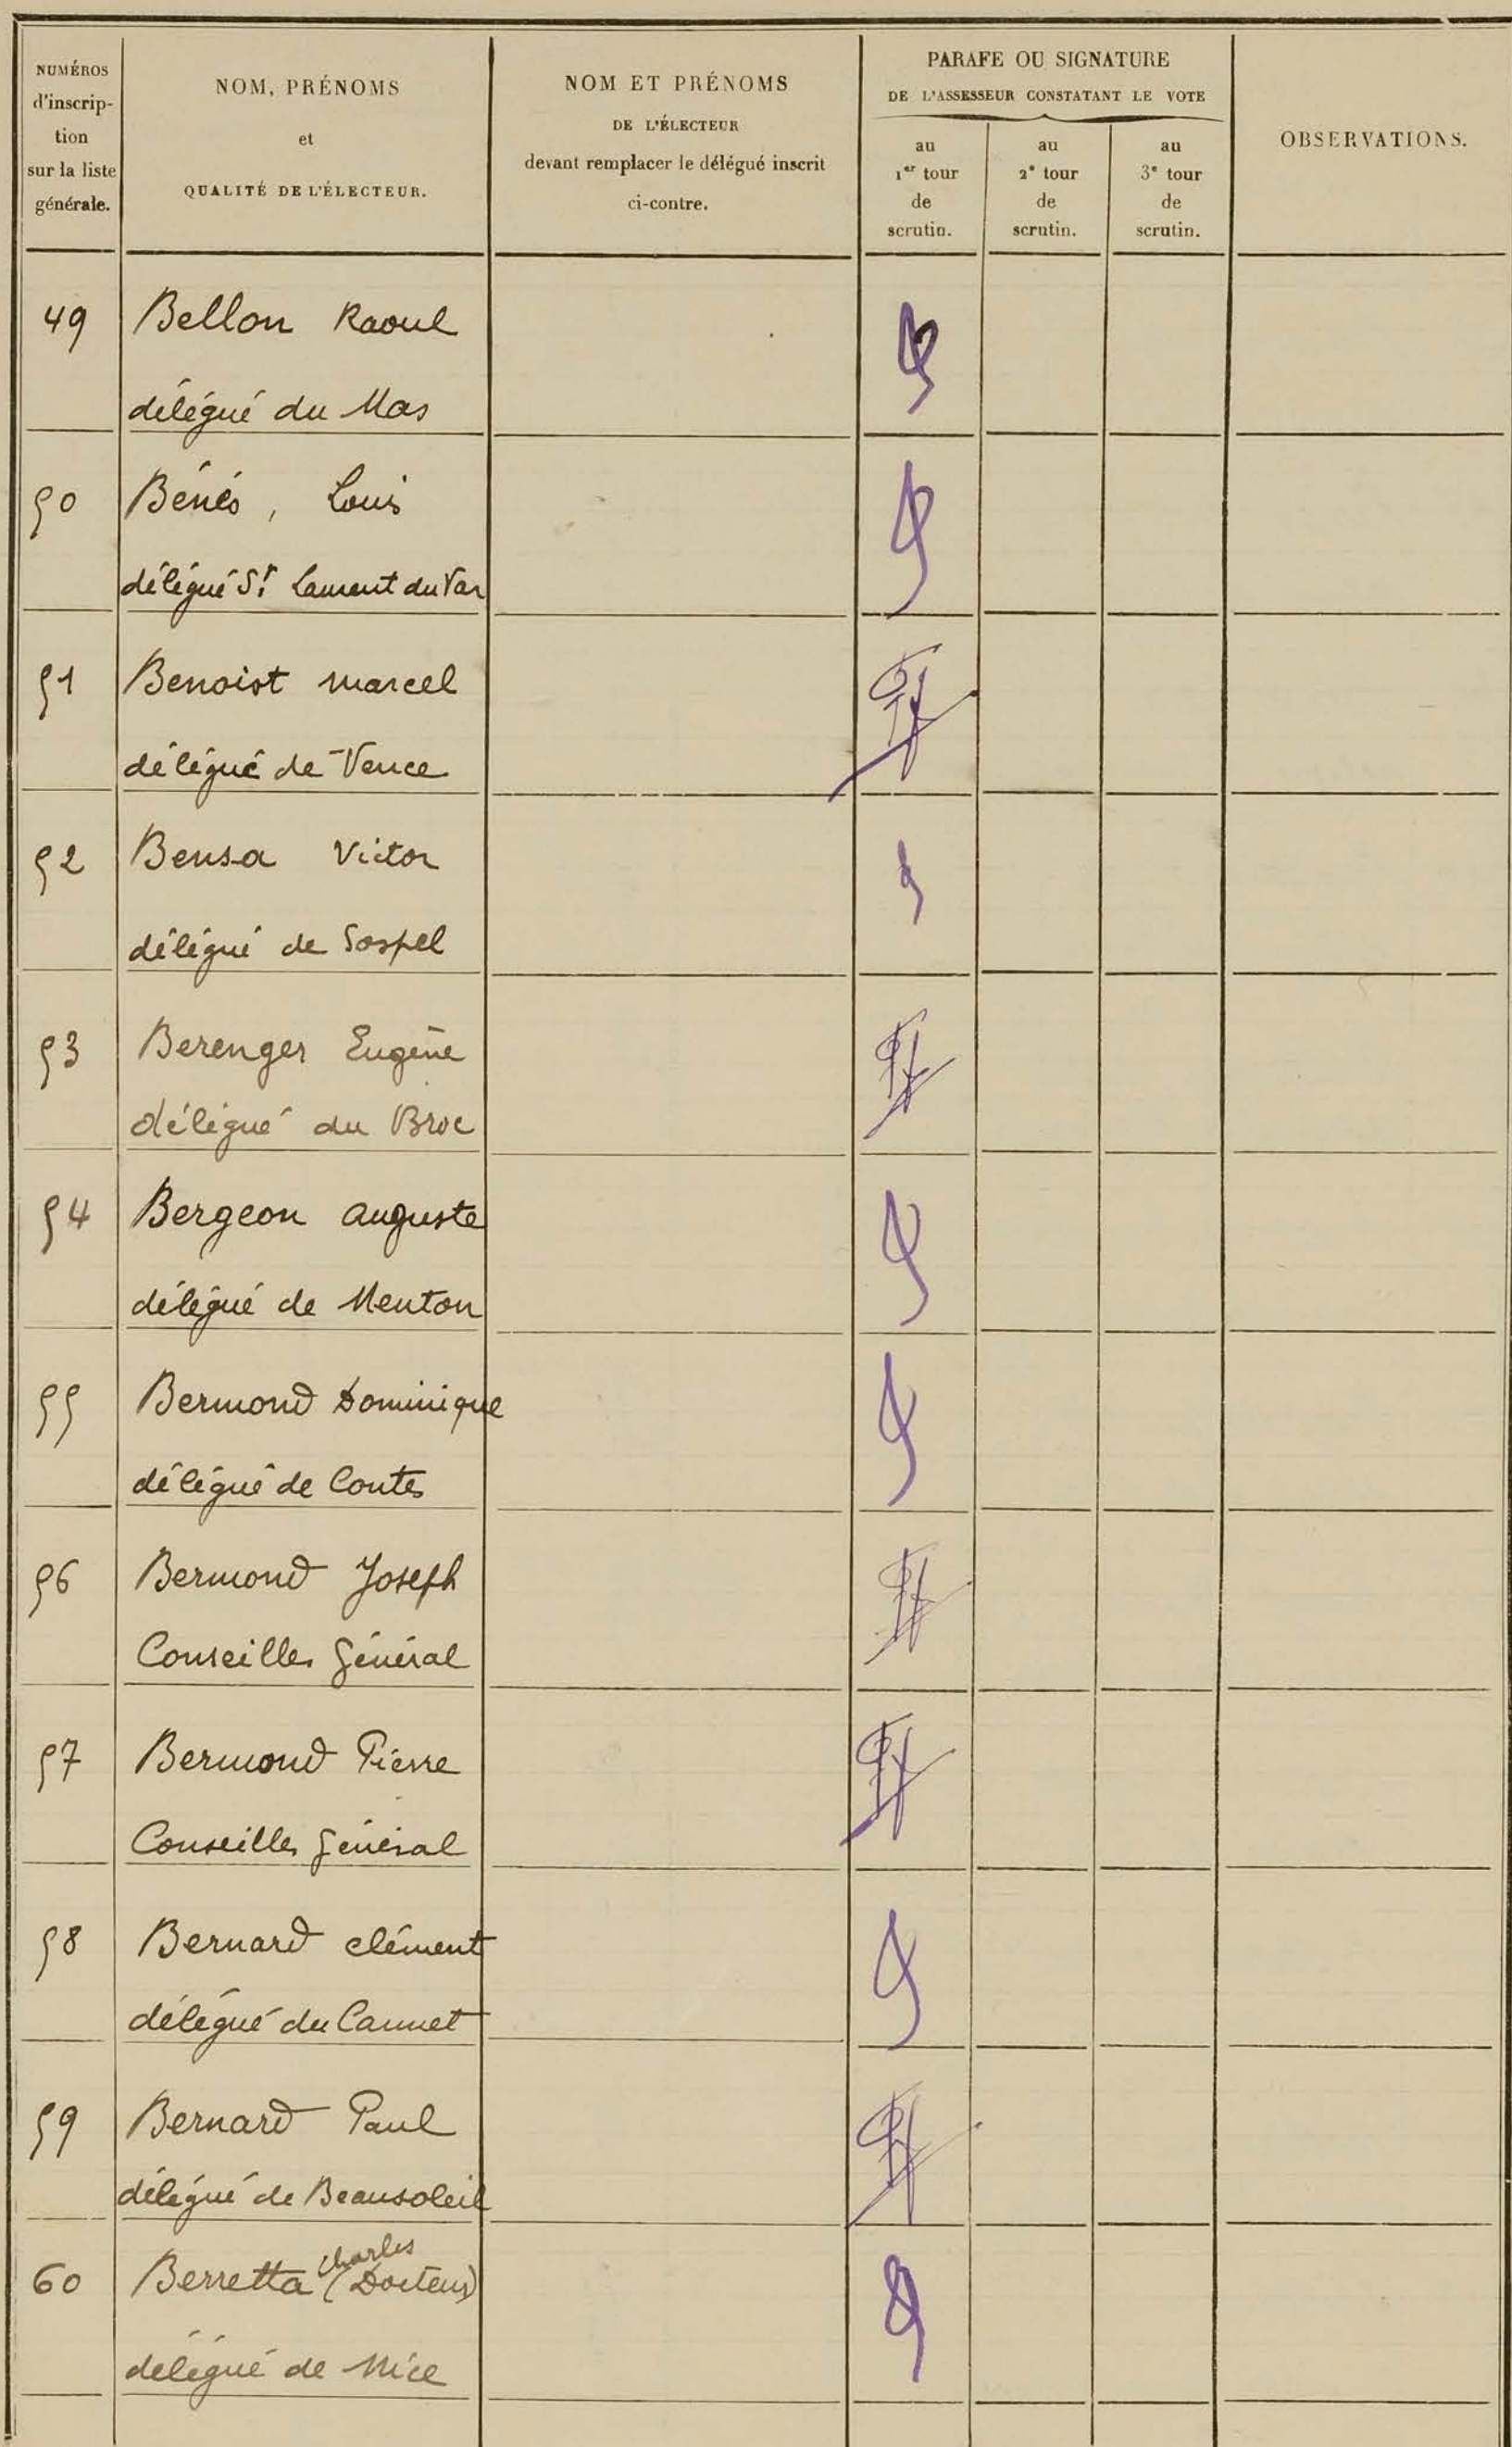 NUMÉROS
d'inscrip-
tion
sur la liste
générale.
NOM, PRÉNOMS
et
QUALITÉ DE L'ÉLECTEUR.
NOM ET PRÉNOMS
DE L'ÉLECTEUR
devant remplacer le délégué inscrit
ci-contre.
PARAFE OU SIGNATURE
DE L'ASSESSEUR CONSTATANT LE VOTE
au
1er tour
de
scrutin.
au
2e tour
de
scrutin.
au
3e tour
de
scrutin.
OBSERVATIONS.
49 Bellon Raoul
délégué du Mas
50 Bénés, Louis
délégué St Laurent du Var
51 Benoist Marcel
délégué de Vence
52 Bensa Victor
délégué de Sospel
53 Berenger Eugène
délégué du Broc
54 Bergeon Auguste
délégué de Menton
55 Bermond Dominique
délégué de Contes
56 Bermond Joseph
Conseiller Général
57 Bermond Pierre
Conseiller Général
58 Bernard Clément
délégué du Cannet
59 Bernard Paul
délégué de Beausoleil
60 Berretta Charles (Docteur)
délégué de Nice